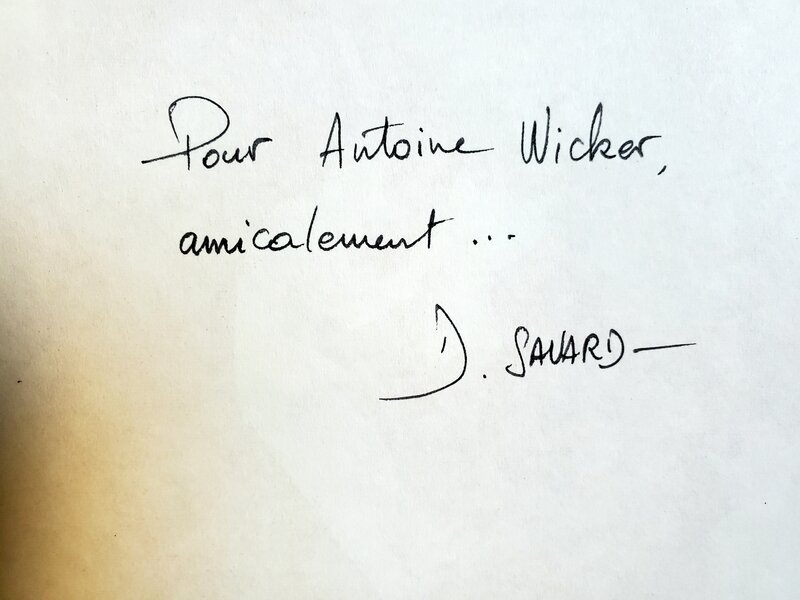 Pour Antoine Wicker,
amicalement ...
D. SAVARD